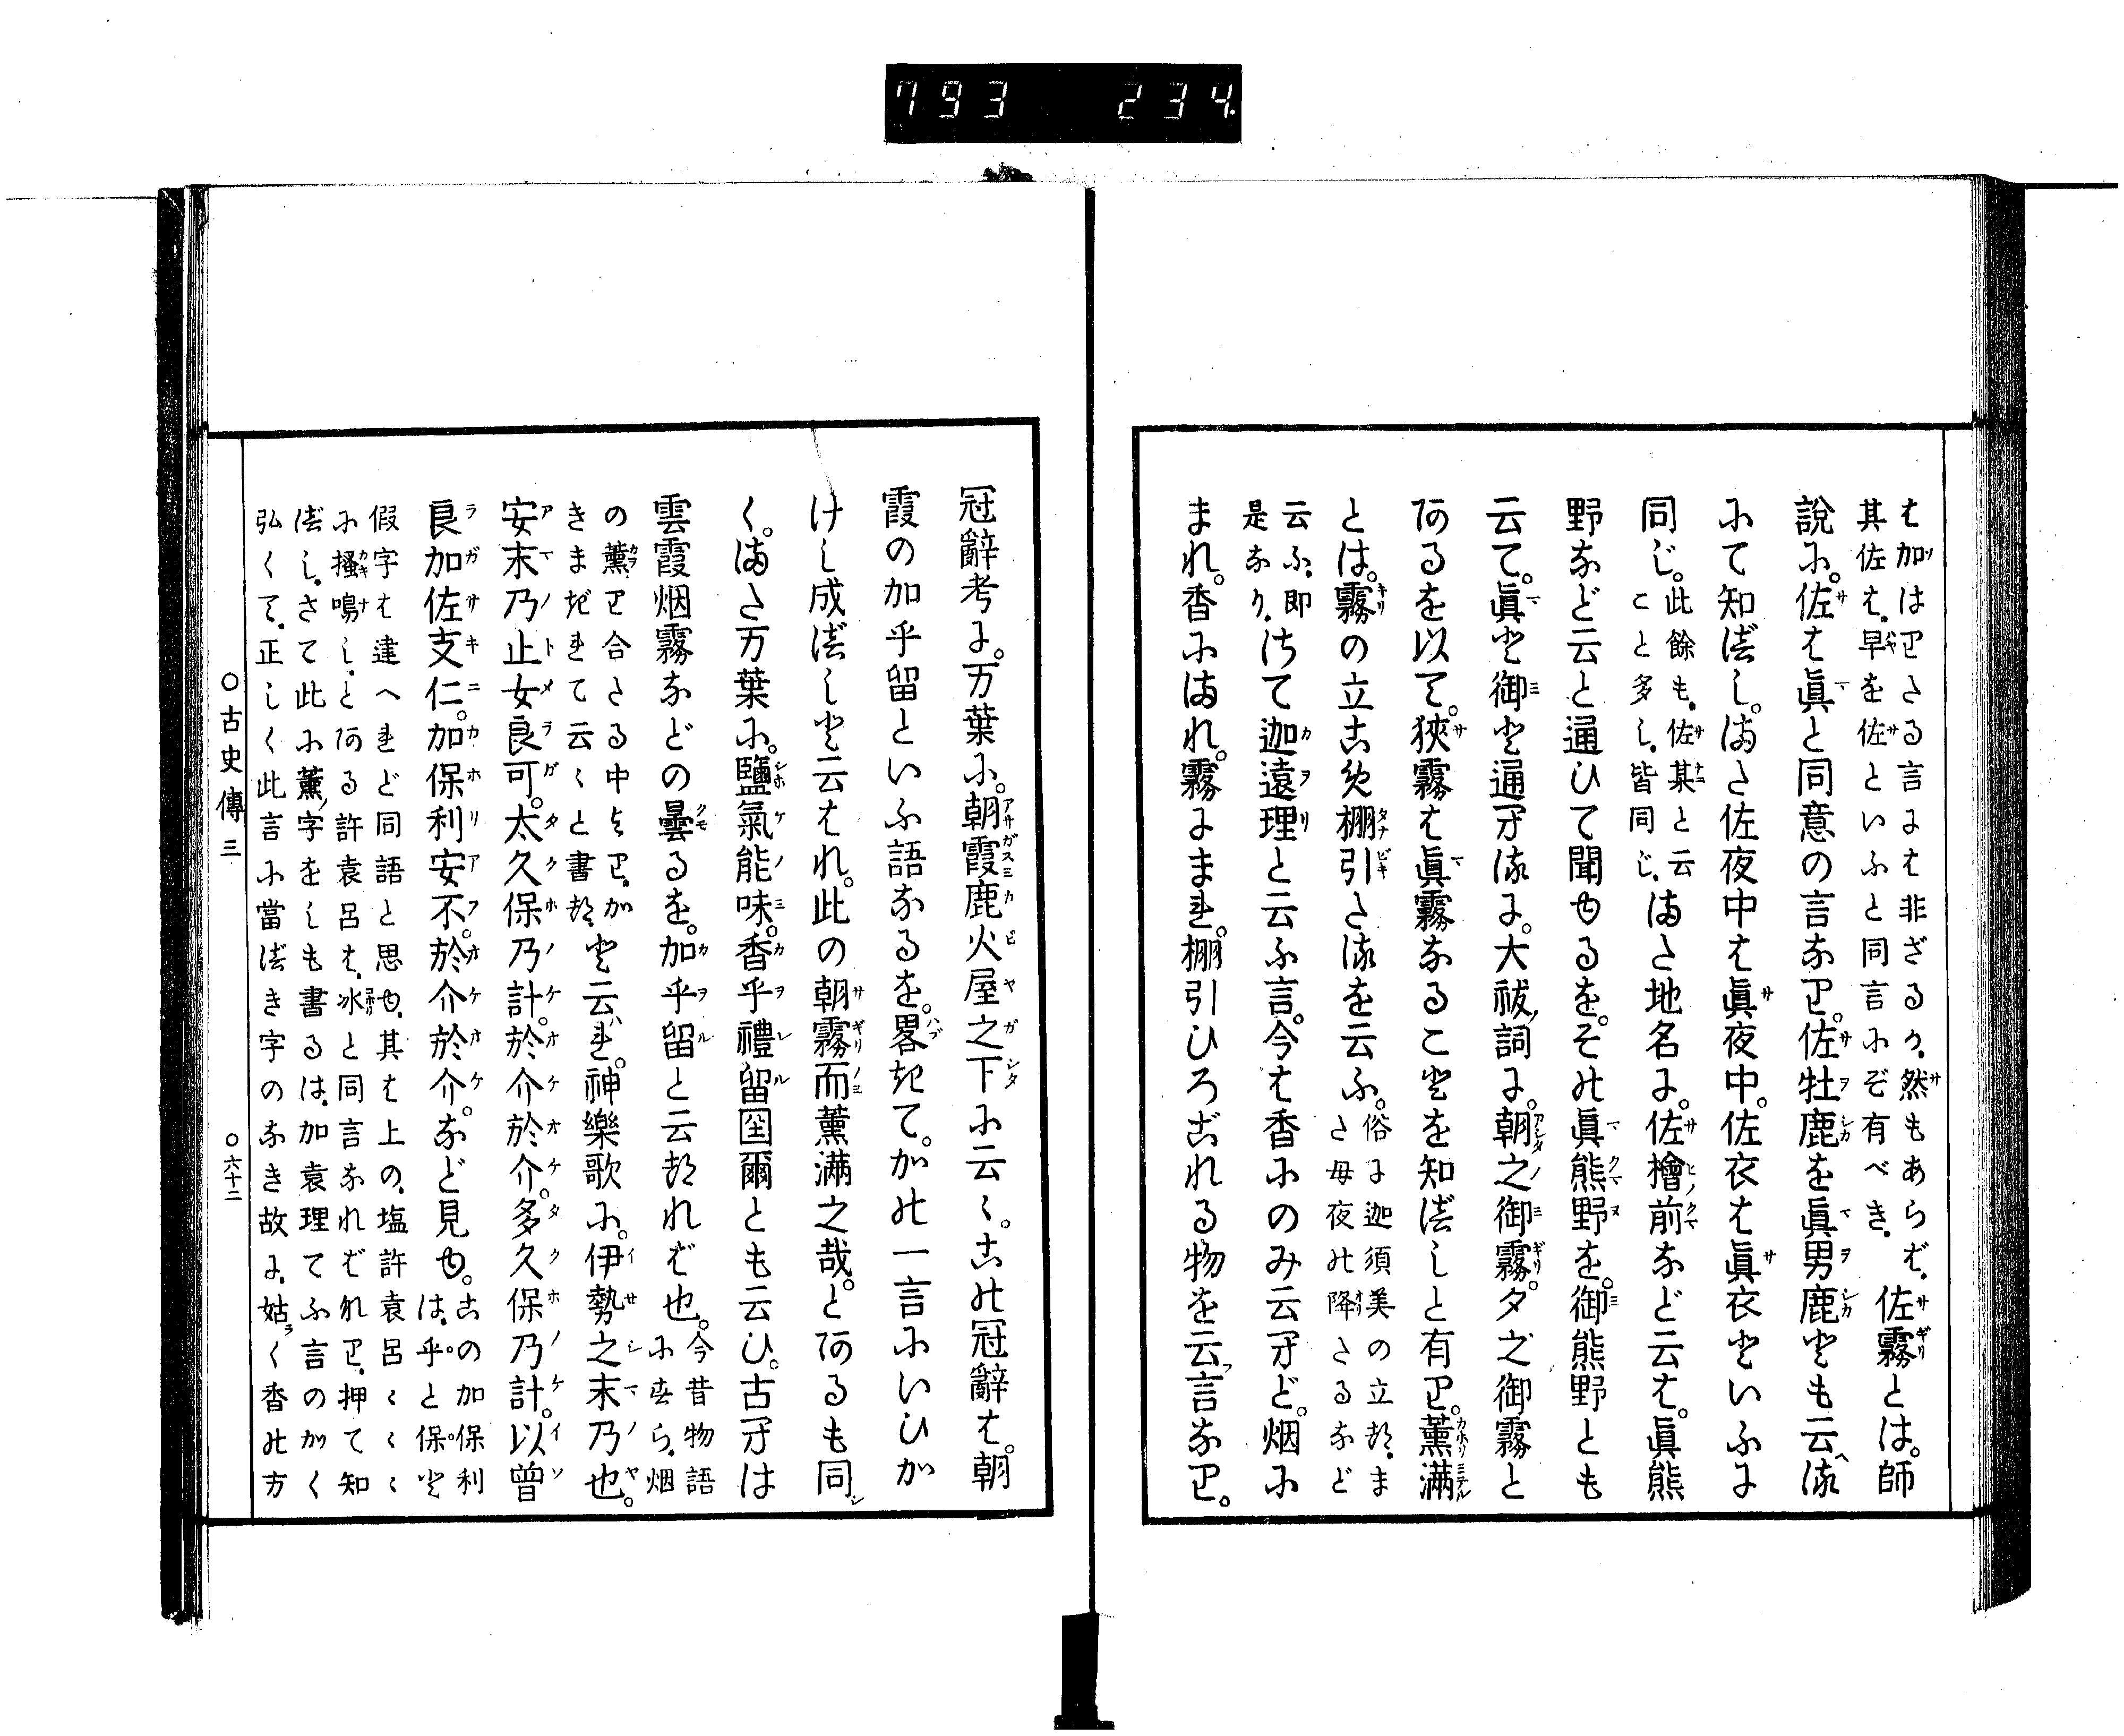 793 234.
は加はりたる言には非ざるか、然もあらば、
其佐は、早を佐といふと同言にぞ有べき、
佐霧とは。師
說に。佐は眞と同意の言なり。佐牡鹿を眞男鹿とも云る
にて知べし。また佐夜中は眞夜中。佐衣は眞衣といふに
同じ。
此餘も、佐某と云
こと多し、皆同じ、
また地名に。佐檜前など云は。眞熊
野など云と通ひて聞ゆるを。その眞熊野を。御熊野とも
云て。眞と御と通する に。大祓詞に。朝之御霧。夕之御霧と
あるを以て。狹霧は眞霧なることを知べしと有り。薰滿
とは。霧の立こめ棚引たるを云ふ。
俗に迦須美の立つ、ま
た毎夜の降たるなど
云ふ、即
是なり、
さて迦遠理と云ふ言。今は香にのみ云すど。烟に
まれ。香にまれ。霧にまれ。棚引ひろごれる物を云言なり。
冠辭考に。万葉に。朝霞鹿火屋之下に云〻。この冠辭は。朝
霞の加乎留といふ語なるを。畧きて。かの一言にいひか
けし成べしと云はれ。此の朝霧而薰滿之哉。とあるも同
く。また万葉に。鹽氣能味。香乎禮留國爾とも云ひ。古すは
雲霞烟霧などの曇るを。加乎留と云つれば也。
今昔物語
にすら、烟
の薰り合たる中より、か
きまぎれて云〻と書つ、
と云れ。神樂歌に。伊勢之末乃也。
安末乃止女良可。太久保乃計。於介於介。多久保乃計。以曾
良加佐支仁。加保利安不。於介於介。など見ゆ。
この加保利
は、乎と保と
假字は違へれど同語と思ゆ、其は上の、塩許袁呂〻〻〻
に搔鳴し、とある許袁呂は、冰と同言なればなり、押て知
べし、さて此に薰字をしも書るは、加袁理てふ言のかく
弘くて、正しく此言に當べき字のなき故に、姑く香の方
○古史傳三
○六十二